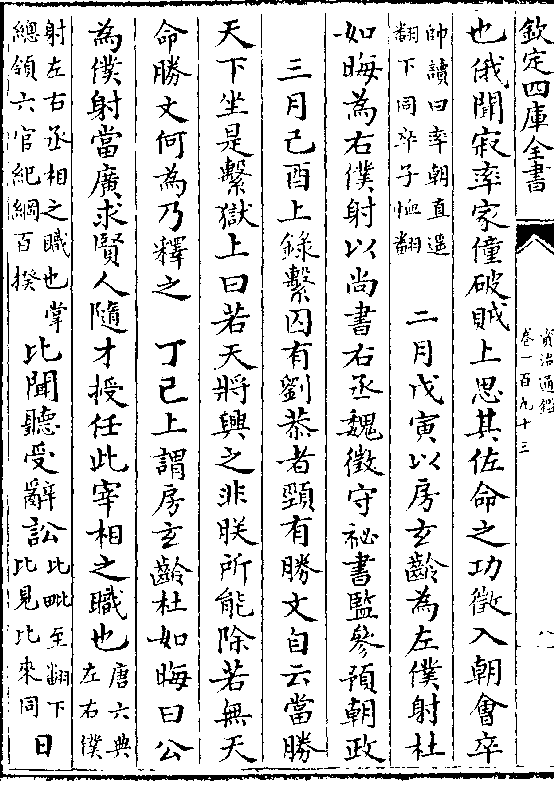 欽定四庫全書
資治通鑑
卷一百九十三
也俄聞寂率家僮破賊上思其佐命之功徵入朝會卒
帥讀曰率朝直遥
翻下同卒子恤翻
二月戊寅以房玄齡為左僕射杜
如晦為右僕射以尚書右丞魏徵守祕書監參預朝政
三月己酉上錄繫囚有劉恭者頸有勝文自云當勝
天下坐是繫獄上曰若天將興之非朕所能除若無天
命勝文何為乃釋之　丁巳上謂房玄齡杜如晦曰公
為僕射當廣求賢人隨才授任此宰相之職也
唐六典
左右僕
射左右丞相之職也掌
總領六官紀綱百揆
比聞聽受辭訟
比毗至翻下
比見比來同
日